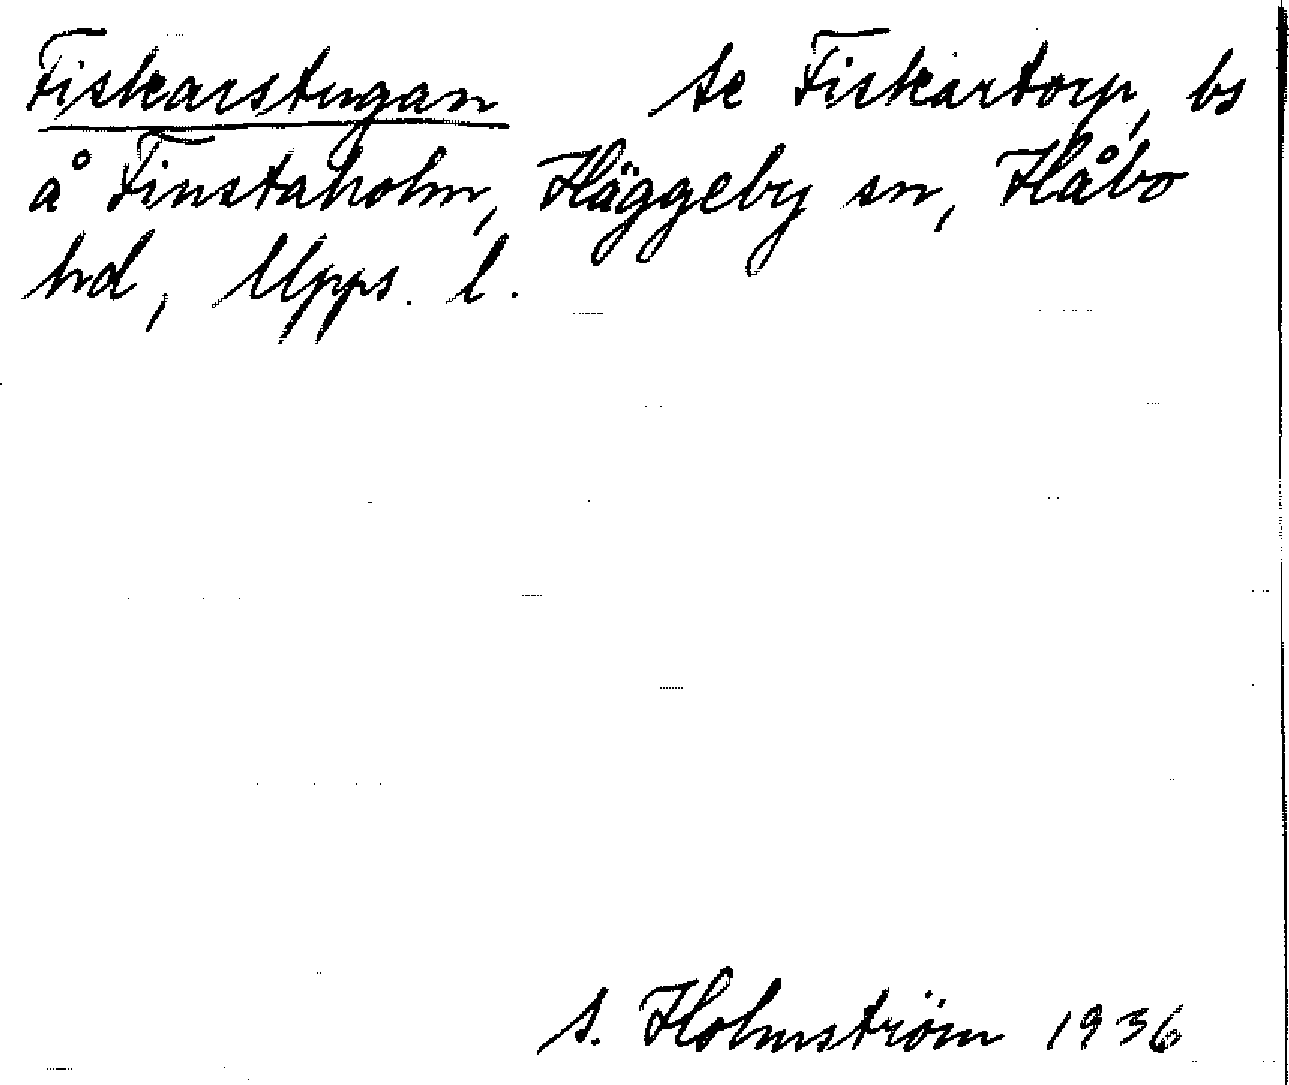 Fiskarstugan se Fiskartorp, bs
å Finstaholm, Häggeby sn, Håbo
hd, Upps. l.
S. Holmström 1936